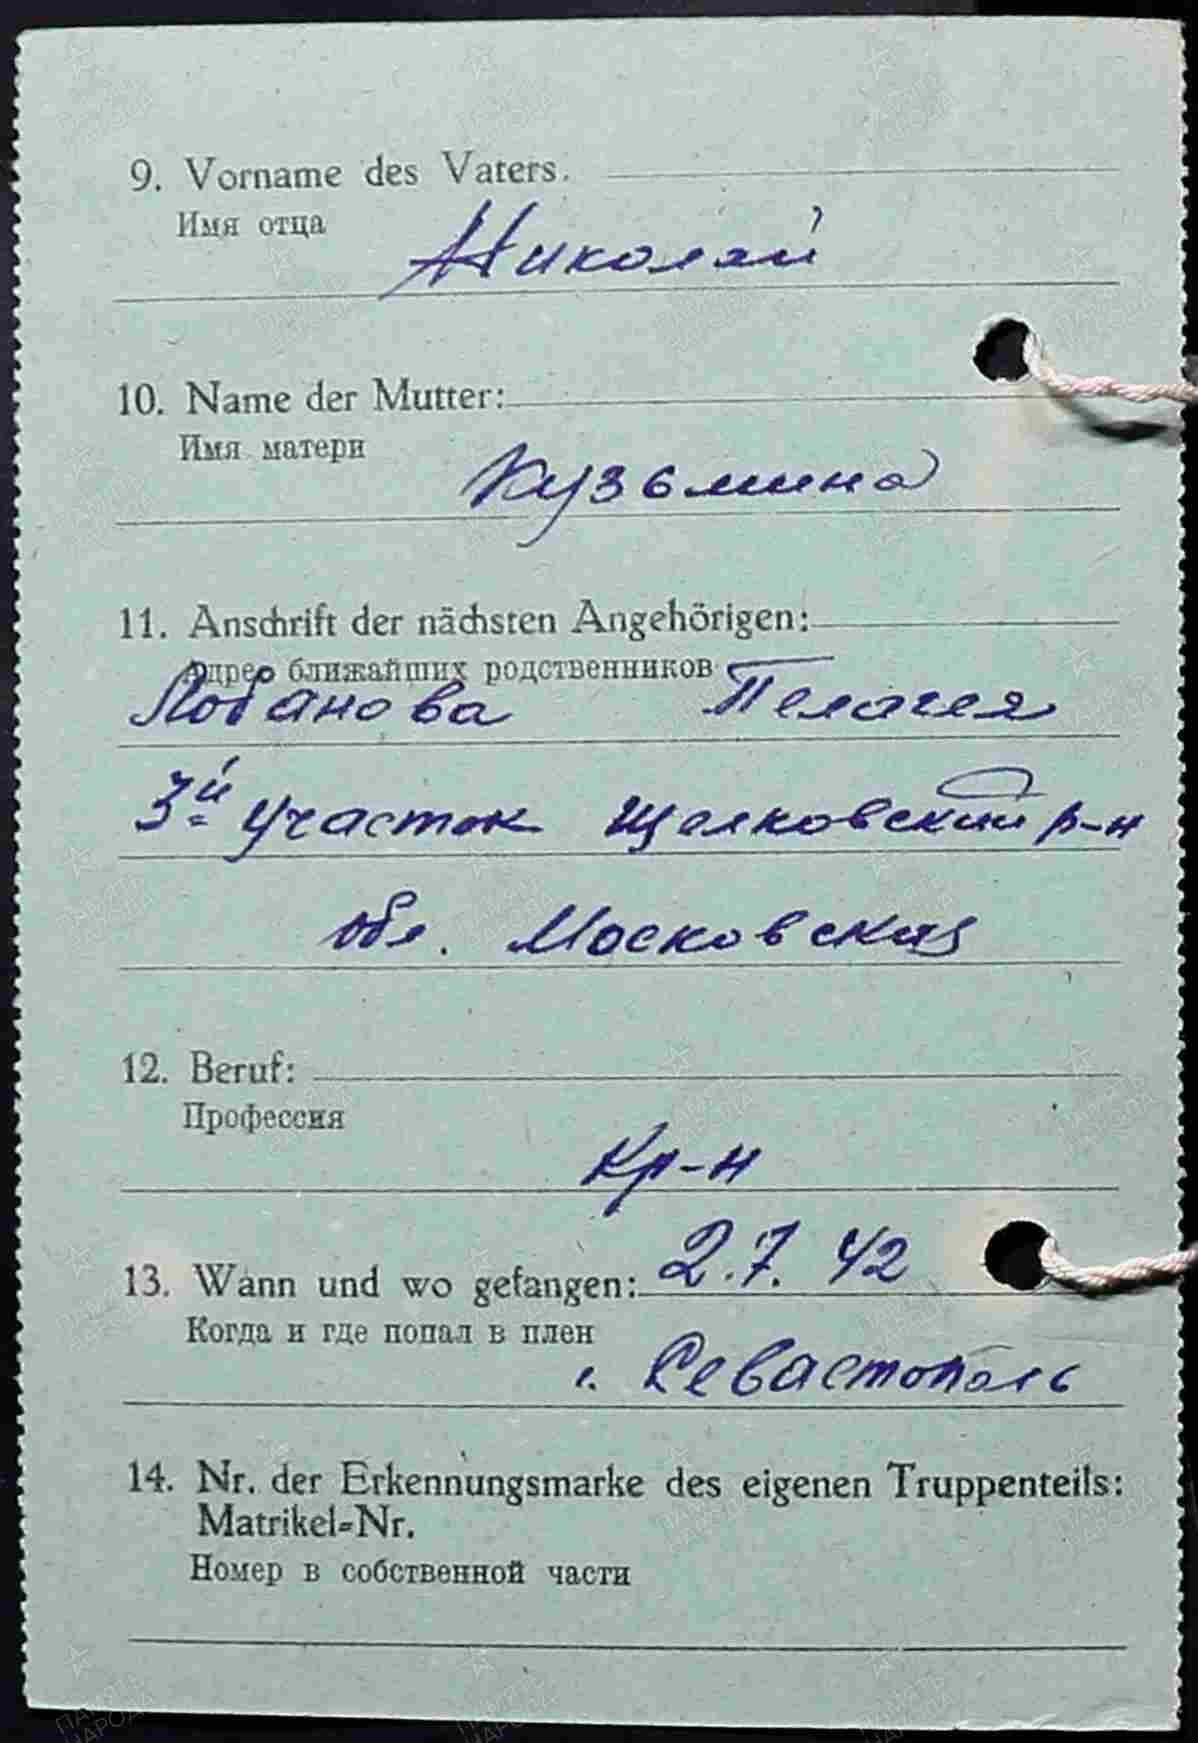 9. Vorname des Vaters.
Имя отца
Николай
10. Name der Mutter:
Имя матери
Кузьмина
11. Anschrift der nächsten Angehörigen:
Адрес ближайших родственников
Лобанова Пелагея
3й участок Щелковский р-н
обл. Московская
12. Beruf:
Профессия
Кр-н
13. Wann und wo gefangen: 2.7.42
Когда и где попал в плен
г. Севастополь
14. Nr. der Erkennungsmarke des eigenen Truppenteils:
Matrikel-Nr.
Номер в собственной части
ПАМЯТЬ НАРОДА